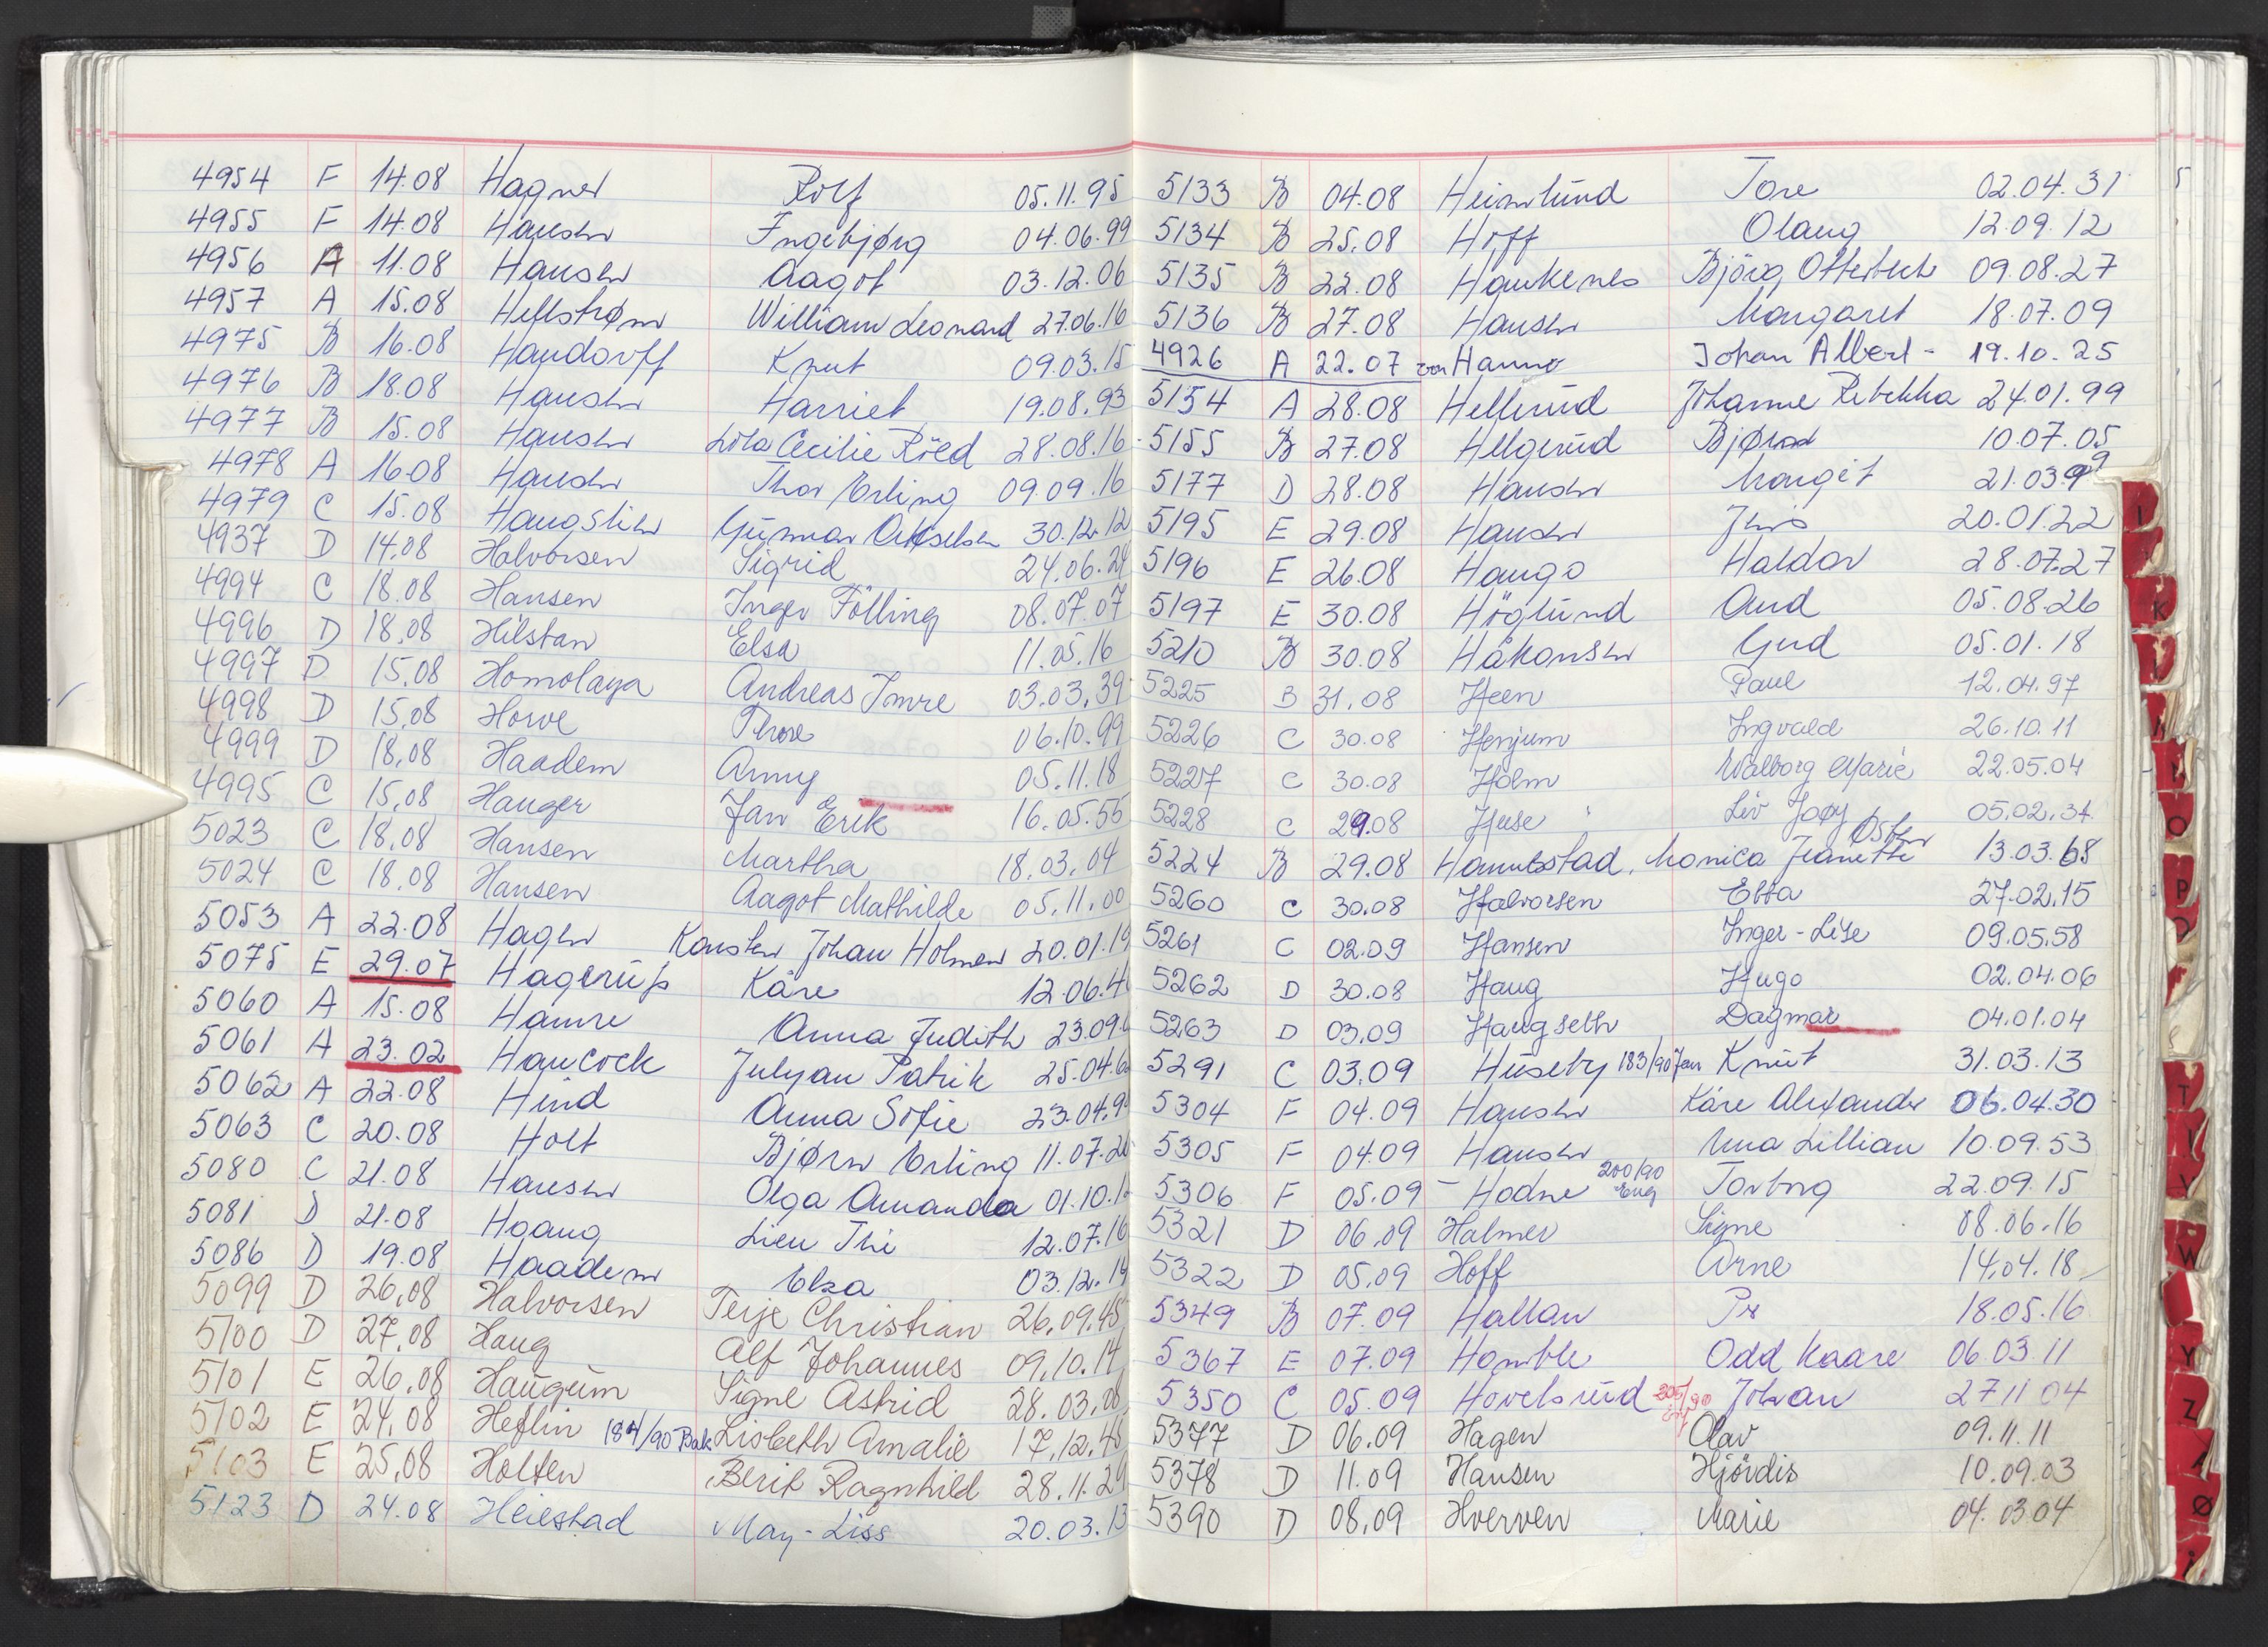 4954 F 14.08 Hagner Rolf 05.11.95
4955 F 14.08 Hansen Ingebjørg 04.06.99
4956 A 11.08 Hansen Aagot 03.12.06
4957 A 15.08 Hellstrøm William Leonard 27.06.16
4975 B 16.08 Handorff Knut 09.03.15
4976 B 18.08 Hansen Harriet 19.08.93
4977 B 15.08 Hansen Cecilie Röed 28.08.16
4978 A 16.08 Hansen Thor Erling 09.09.16
4979 C 15.08 Haugslien Gunnar 30.12.12
4937 D 14.08 Halvorsen Sigrid 24.06.24
4994 C 18.08 Hansen Inger Fölling 08.07.07
4996 D 18.08 Hilstan Elsa 11.05.16
4997 D 15.08 Homolaya Andreas Imre 03.03.39
4998 D 15.08 Horve 06.10.99
4999 D 18.08 Haadem Anny 05.11.18
4995 C 15.08 Hauger Jan Erik 16.05.55
5023 C 18.08 Hansen Martha 18.03.04
5024 C 18.08 Hansen Aagot Mathilde 05.11.00
5053 A 22.08 Hagen Karsten Johan Holmen 20.01.19
5075 E 29.07 Hagerup Kåre 12.06.4
5060 A 15.08 Hamre Anna Judith 23.09.
5061 A 23.02 Hancock Julyan Patrik 25.04.6
5062 A 22.08 Hind Anna Sofie 23.04.9
5063 C 20.08 Holt Bjørn Erling 11.07.2
5080 C 21.08 Hansen Olga Amanda 01.10.1
5081 D 21.08 Hoang Lieu Thi 12.07.16
5086 D 19.08 Haadem Elsa 03.12.14
5099 D 26.08 Halvorsen Terje Christian 26.09.45
5100 D 27.08 Haug Alf Johannes 09.10.14
5101 E 26.08 Haugum Signe Astrid 28.03.08
5102 E 24.08 Heflin 184/90 Bak Lisbeth Amalie 17.12.45
5103 E 25.08 Holten Berit Ragnhild 28.11.29
5123 D 24.08 Heiestad May-Liss 20.03.13
5133 B 04.08 Heimlund Tore 02.04.31
5134 B 25.08 Hoff Olaug 12.09.12
5135 B 22.08 Haukenes Bjørg Otterbech 09.08.27
5136 B 27.08 Hansen Margaret 18.07.09
4926 A 22.07 von Hanno Johan Albert - 19.10.25
5154 A 28.08 Hellerud Johanne Rebekka 24.01.99
5155 B 27.08 Helgerud 10.07.05
5177 D 28.08 Hansen Margit 21.03.99
5195 E 29.08 Hansen Jens 20.01.22
5196 E 26.08 Haugo Haldor 28.07.27
5197 E 30.08 Höglund Aud 05.08.26
5210 B 30.08 Håkonsen Gud 05.01.18
5225 B 31.08 Heen Paul 12.04.97
5226 C 30.08 Henjum Ingvald 26.10.11
5227 C 30.08 Holm Walborg Marie 22.05.04
5228 C 29.08 Huse Liv Joay 05.02.34
5224 B 29.08 Hammelstad, Monica Jeanette 13.03.68
5260 C 30.08 Halvorsen Ebba 27.02.15
5261 C 02.09 Hansen Inger-Lise 09.05.58
5262 D 30.08 Haug Hugo 02.04.06
5263 D 03.09 Haugseth Dagmar 04.01.04
5291 C 03.09 Huseby 183/90 Jan Knut 31.03.13
5304 F 04.09 Hansen Kåre Alexander 06.04.30
5305 F 04.09 Hansen Una Lillian 10.09.53
5306 F 05.09 - Hodne 200/90 Eug Torborg 22.09.15
5321 D 06.09 Halmer Signe 08.06.16
5322 D 05.09 Hoff Arne 14.04.18
5349 B 07.09 Hallan Per 18.05.16
5367 E 07.09 Homble Odd Kaare 06 03 11
5350 C 05.09 Hovelsrud Johan 27 11 04
5377 D 06.09 Hagen Olav 09.11.11
5378 D 11.09 Hansen Hjördis 10.09.03
5390 D 08.09 Hverven Marie 04.03.04
K
O
P
T
Y
W
Y
Z
Ø